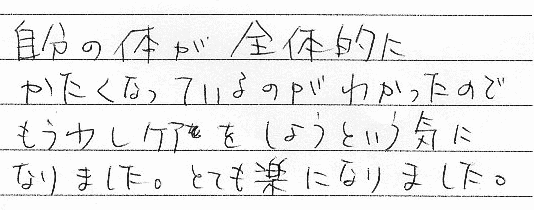 自分の体が全体的に
かたくなっているのがわかったので
もう少しケアをしようという気に
なりました。とても楽になりました。